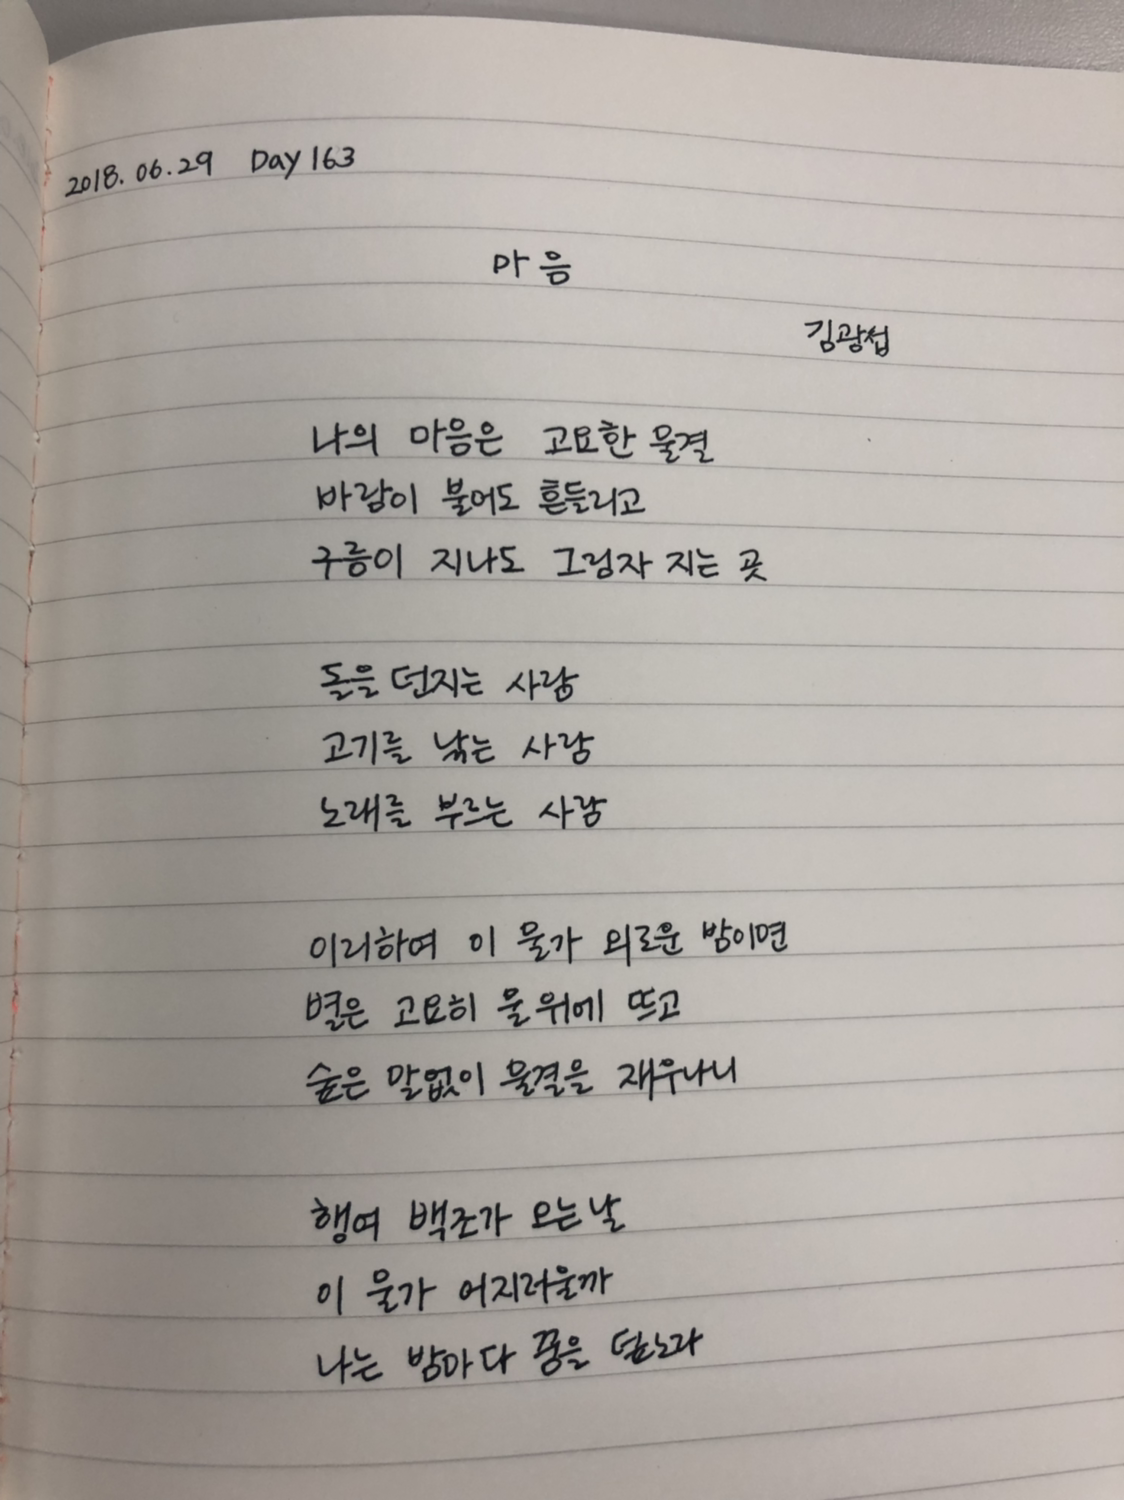 2018. 06. 29 Day 163
마음
김광섭
나의 마음은 고요한 물결
바람이 불어도 흔들리고
구름이 지나도 그림자 지는 곳
돌을 던지는 사람
고기를 낚는 사람
노래를 부르는 사람
이리하여 이 물가 외로운 밤이면
별은 고요히 물 위에 뜨고
숲은 말없이 물결을 재우나니
행여 백조가 오는 날
이 물가 어지러울까
나는 밤마다 꿈을 덮노라